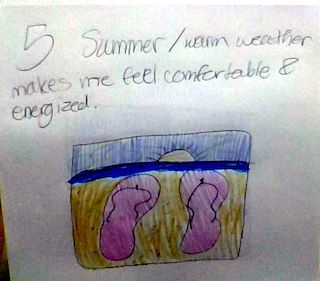 5 Summer/warm weather
makes me feel comfortable &
energized.